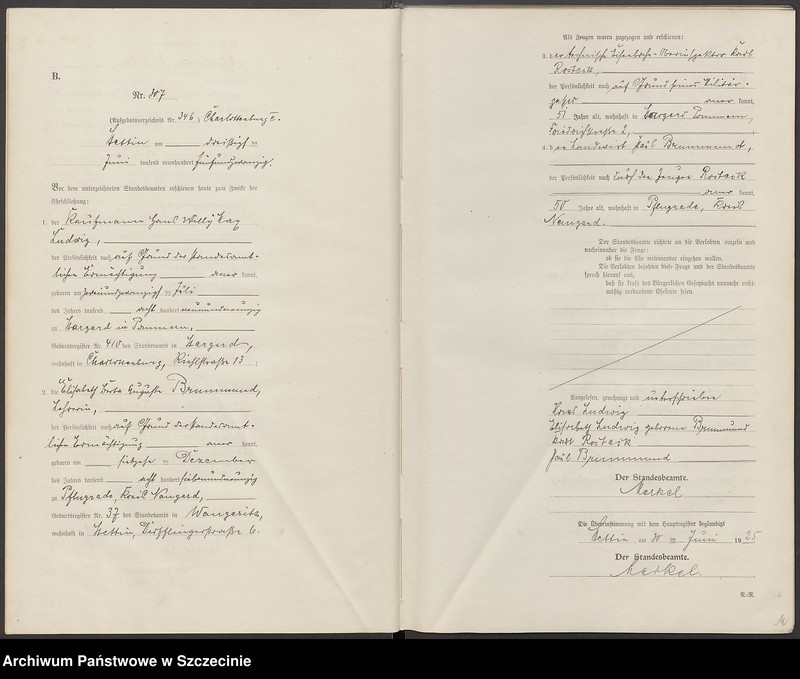 B.
Nr. 807
(Aufgebotsverzeichnis Nr. 346) Charlottenburg I.
Stettin am dreißigsten
Juni tausend neunhundert fünfundzwanzig.
Vor dem unterzeichneten Standesbeamten erschienen heute zum Zwecke der
Eheschließung:
1. der Kaufmann Hans Willy Max
Ludwig,
der Persönlichkeit nach auf Grund der standesamt-
lichen Ermächtigung aner kannt,
geboren am zweiundzwanzigsten Juli
des Jahres tausend acht hundert neunundneunzig
zu Stargard in Pommern,
Geburtsregister Nr. 410 des Standesamts in Stargard,
wohnhaft in Charlottenburg, Riehlstraße 13;
2. die Elisabeth Berta Auguste Brummund,
Lehrerin,
der Persönlichkeit nach auf Grund der standesamt-
lichen Ermächtigung aner kannt,
geboren am Dezember
des Jahres tausend acht hundert siebenundneunzig
zu Pflugrade, Kreis Naugard,
Geburtsregister Nr. 37 des Standesamts in Wangeritz,
wohnhaft in Stettin, Derfflingerstraße 6.
Als Zeugen waren zugezogen und erschienen:
3. der technische Eisenbahn-Oberinspektor Karl
der Persönlichkeit nach auf Grund seines Militär-
passes aner kannt,
51 Jahre alt, wohnhaft in Stargard Pommern,
Friedrichstraße 2,
4. der Landwirt Paul Brummund,
der Persönlichkeit nach durch den Zeugen
aner kannt,
50 Jahre alt, wohnhaft in Pflugrade, Kreis
Naugard.
Der Standesbeamte richtete an die Verlobten einzeln und
nacheinander die Frage:
ob sie die Ehe miteinander eingehen wollen.
Die Verlobten bejahten diese Frage und der Standesbeamte
sprach hierauf aus,
daß sie kraft des Bürgerlichen Gesetzbuchs nunmehr recht-
mäßig verbundene Eheleute seien.
Vorgelesen, genehmigt und unterschrieben
Hans Ludwig
Elisabeth Ludwig geborene Brummund
Karl
Paul Brummund
Der Standesbeamte.
Merkel
Die Übereinstimmung mit dem Hauptregister beglaubigt
Stettin, am 30 ten Juni 1925
Der Standesbeamte.
Merkel.
R.-R.
Archiwum Państwowe w Szczecinie